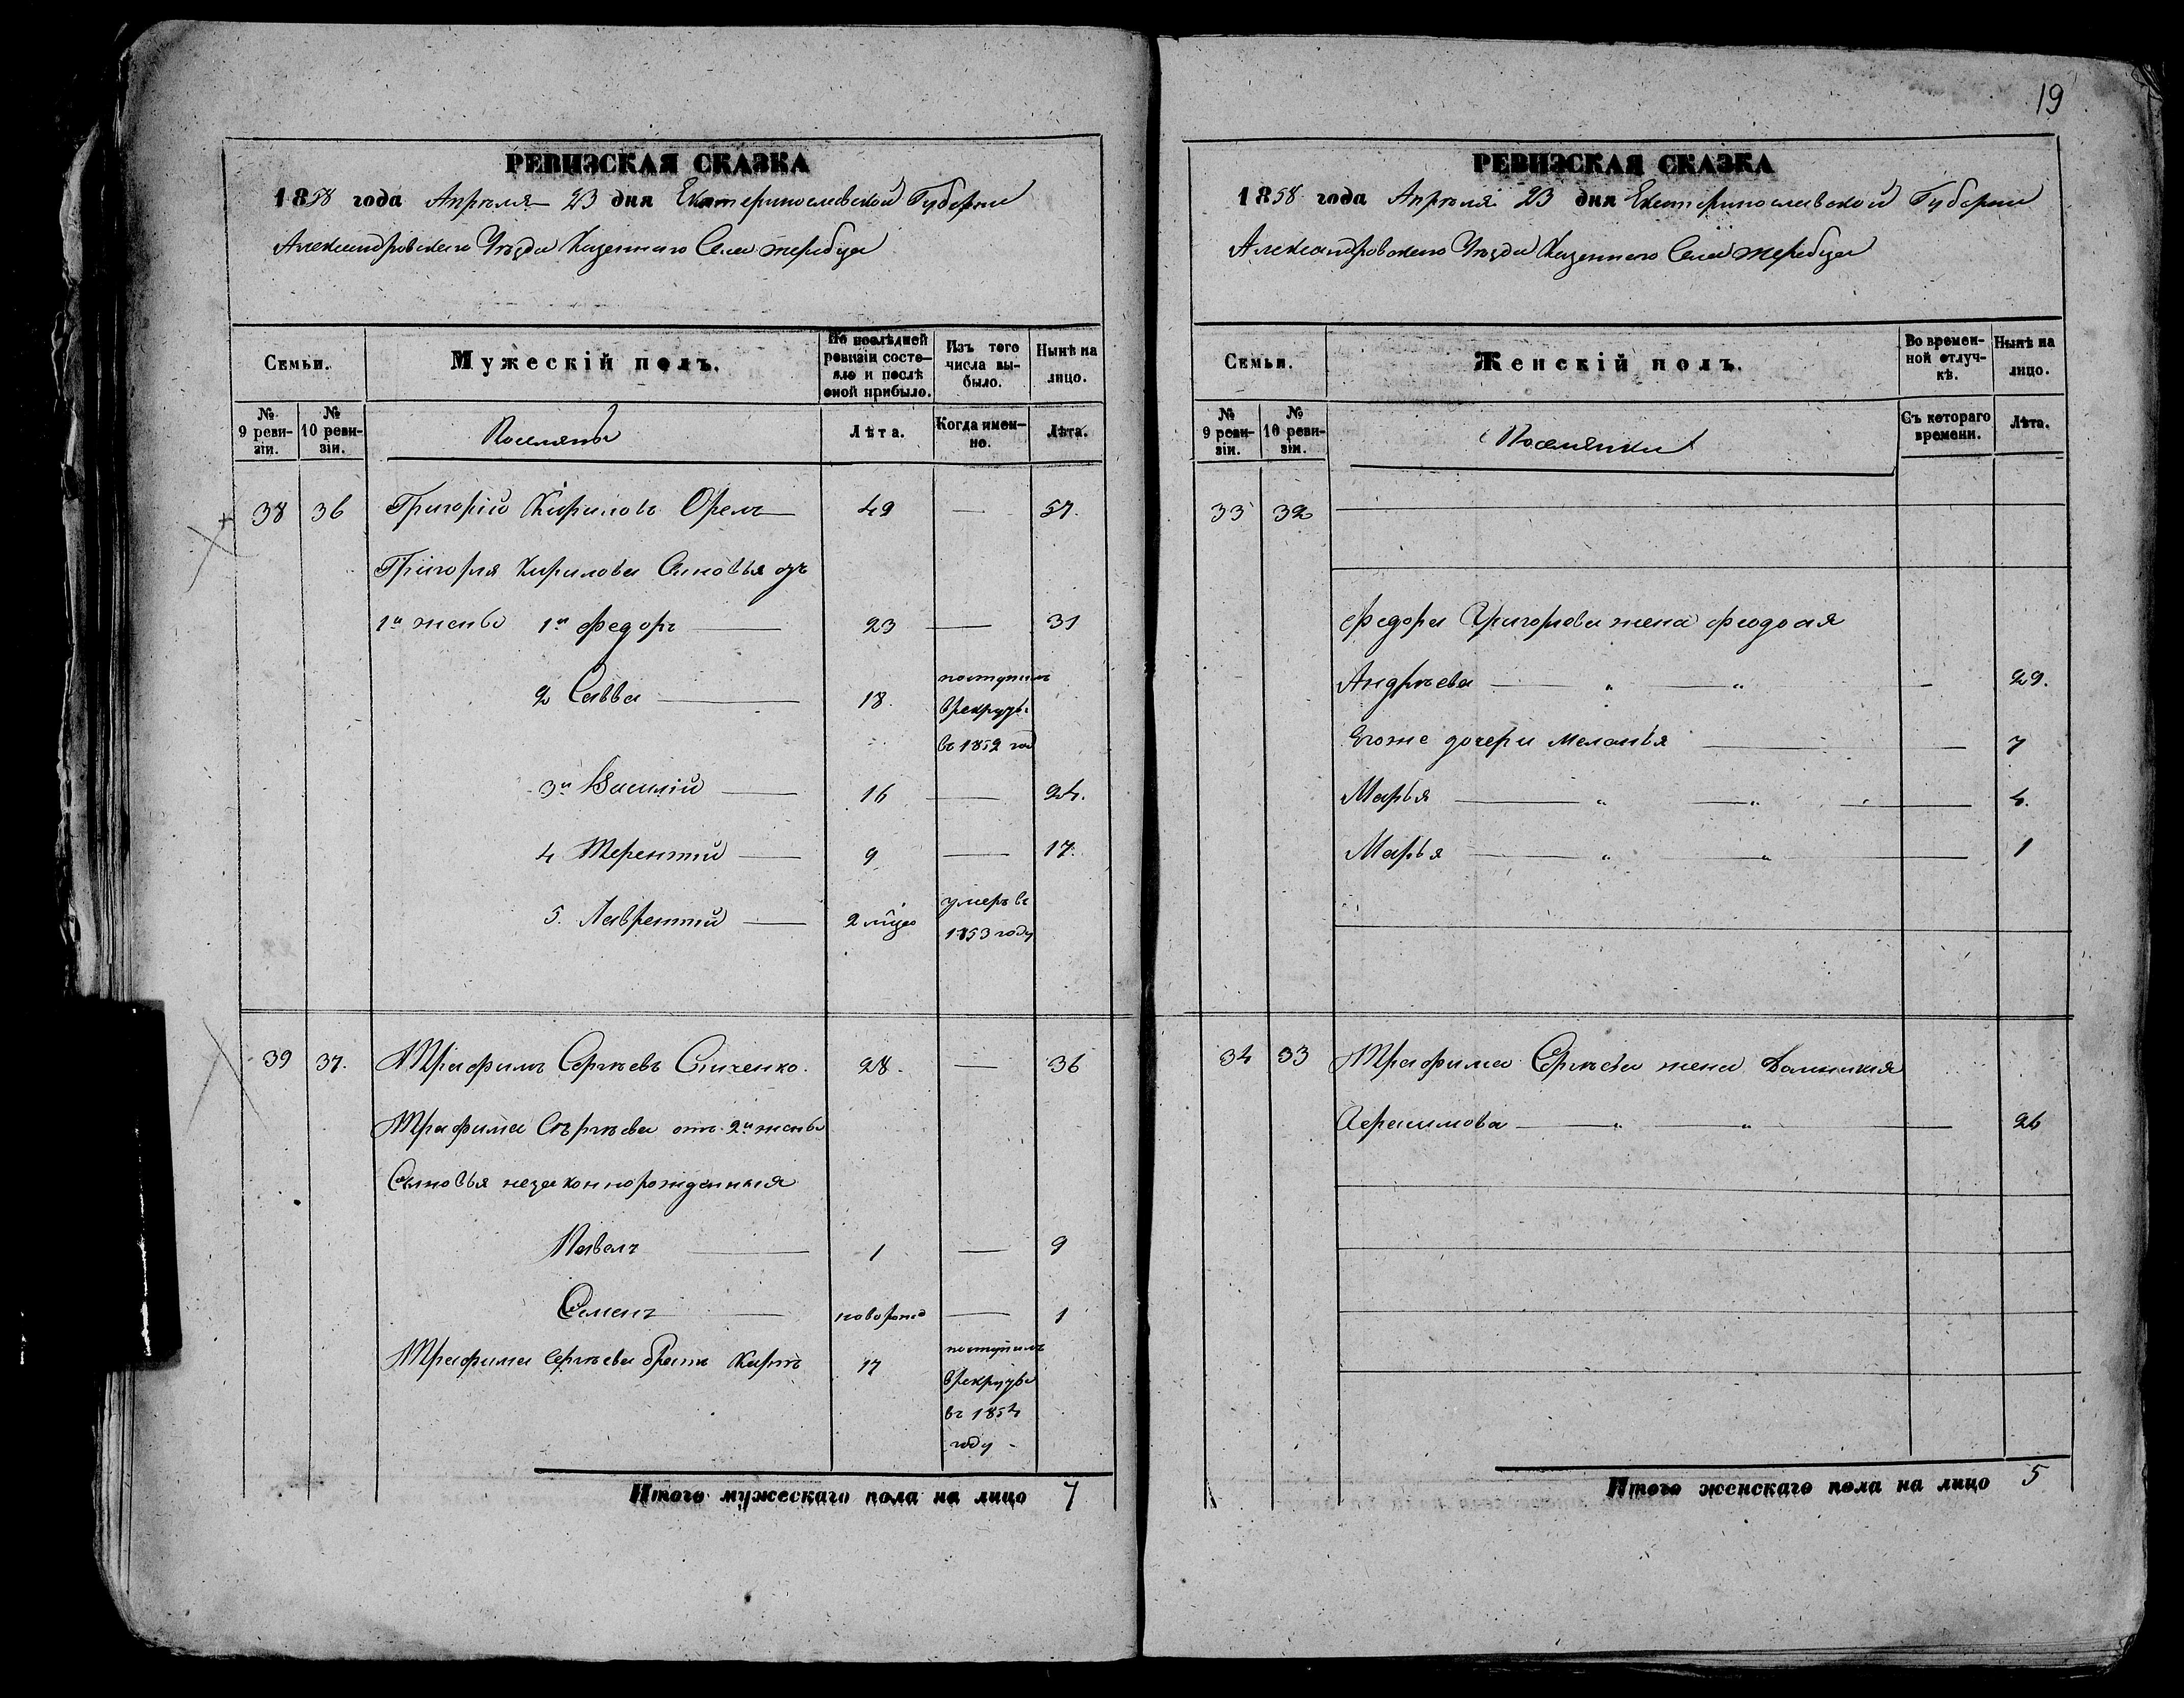 РЕВИЗСКАЯ СКАЗКА
1858 года Апрѣля 23 дня Екатеринославской Губерніи
Александровскаго Уѣзда Казеннаго Села жеребца
Семьи.
Мужескій полъ.
По послѣдней ревизіи состояло и послѣ оной прибыло.
Изъ того числа выбыло.
Нынѣ на лицо.
№ 9 ревизіи.
№ 10 ревизіи.
Поселяны
Лѣта.
Когда именно.
Лѣта.
38 36 Григорій Кириловъ Орелъ 49 — 57.
Григорія Кирилова Сыновья отъ
1й жены 1й Федоръ 23 — 31
2 Савва 18. поступилъ
в рекруты
въ 1852 год
3й Василій 16 — 24.
4 Терентій 9 — 17.
5. Лаврентій 2 мѣс умеръ въ
1853 году
39 37. Трафимъ Сергѣевъ 28. — 36
Трафима Сергѣева отъ 2й жены
Сыновья незаконнорожденныя
Павелъ 1 — 9
Семенъ новорожд — 1
Трафима Сергѣева братъ 17 поступилъ
в рекруты
въ 1854
году
Итого мужескаго пола на лицо 7
19
РЕВИЗСКАЯ СКАЗКА
1858 года Апрѣля 23 дня Екатеринославской Губерніи
Александровскаго Уѣзда Казеннаго Села жеребца
Семьи.
Женскій полъ.
Во временной отлучкѣ.
Нынѣ на лицо.
№ 9 ревизіи.
№ 10 ревизіи.
Поселянки
Съ котораго времени.
Лѣта.
33 32
Федора Григорьева жена
Андрѣева — " — " — 29.
Егоже дочери Меланья — 7
Марья — " — " — 4.
Марья — " — " — 1
34 33 Трафима Сергѣева жена Домникия
Герасимова — " — " — 26
Итого женскаго пола на лицо 5